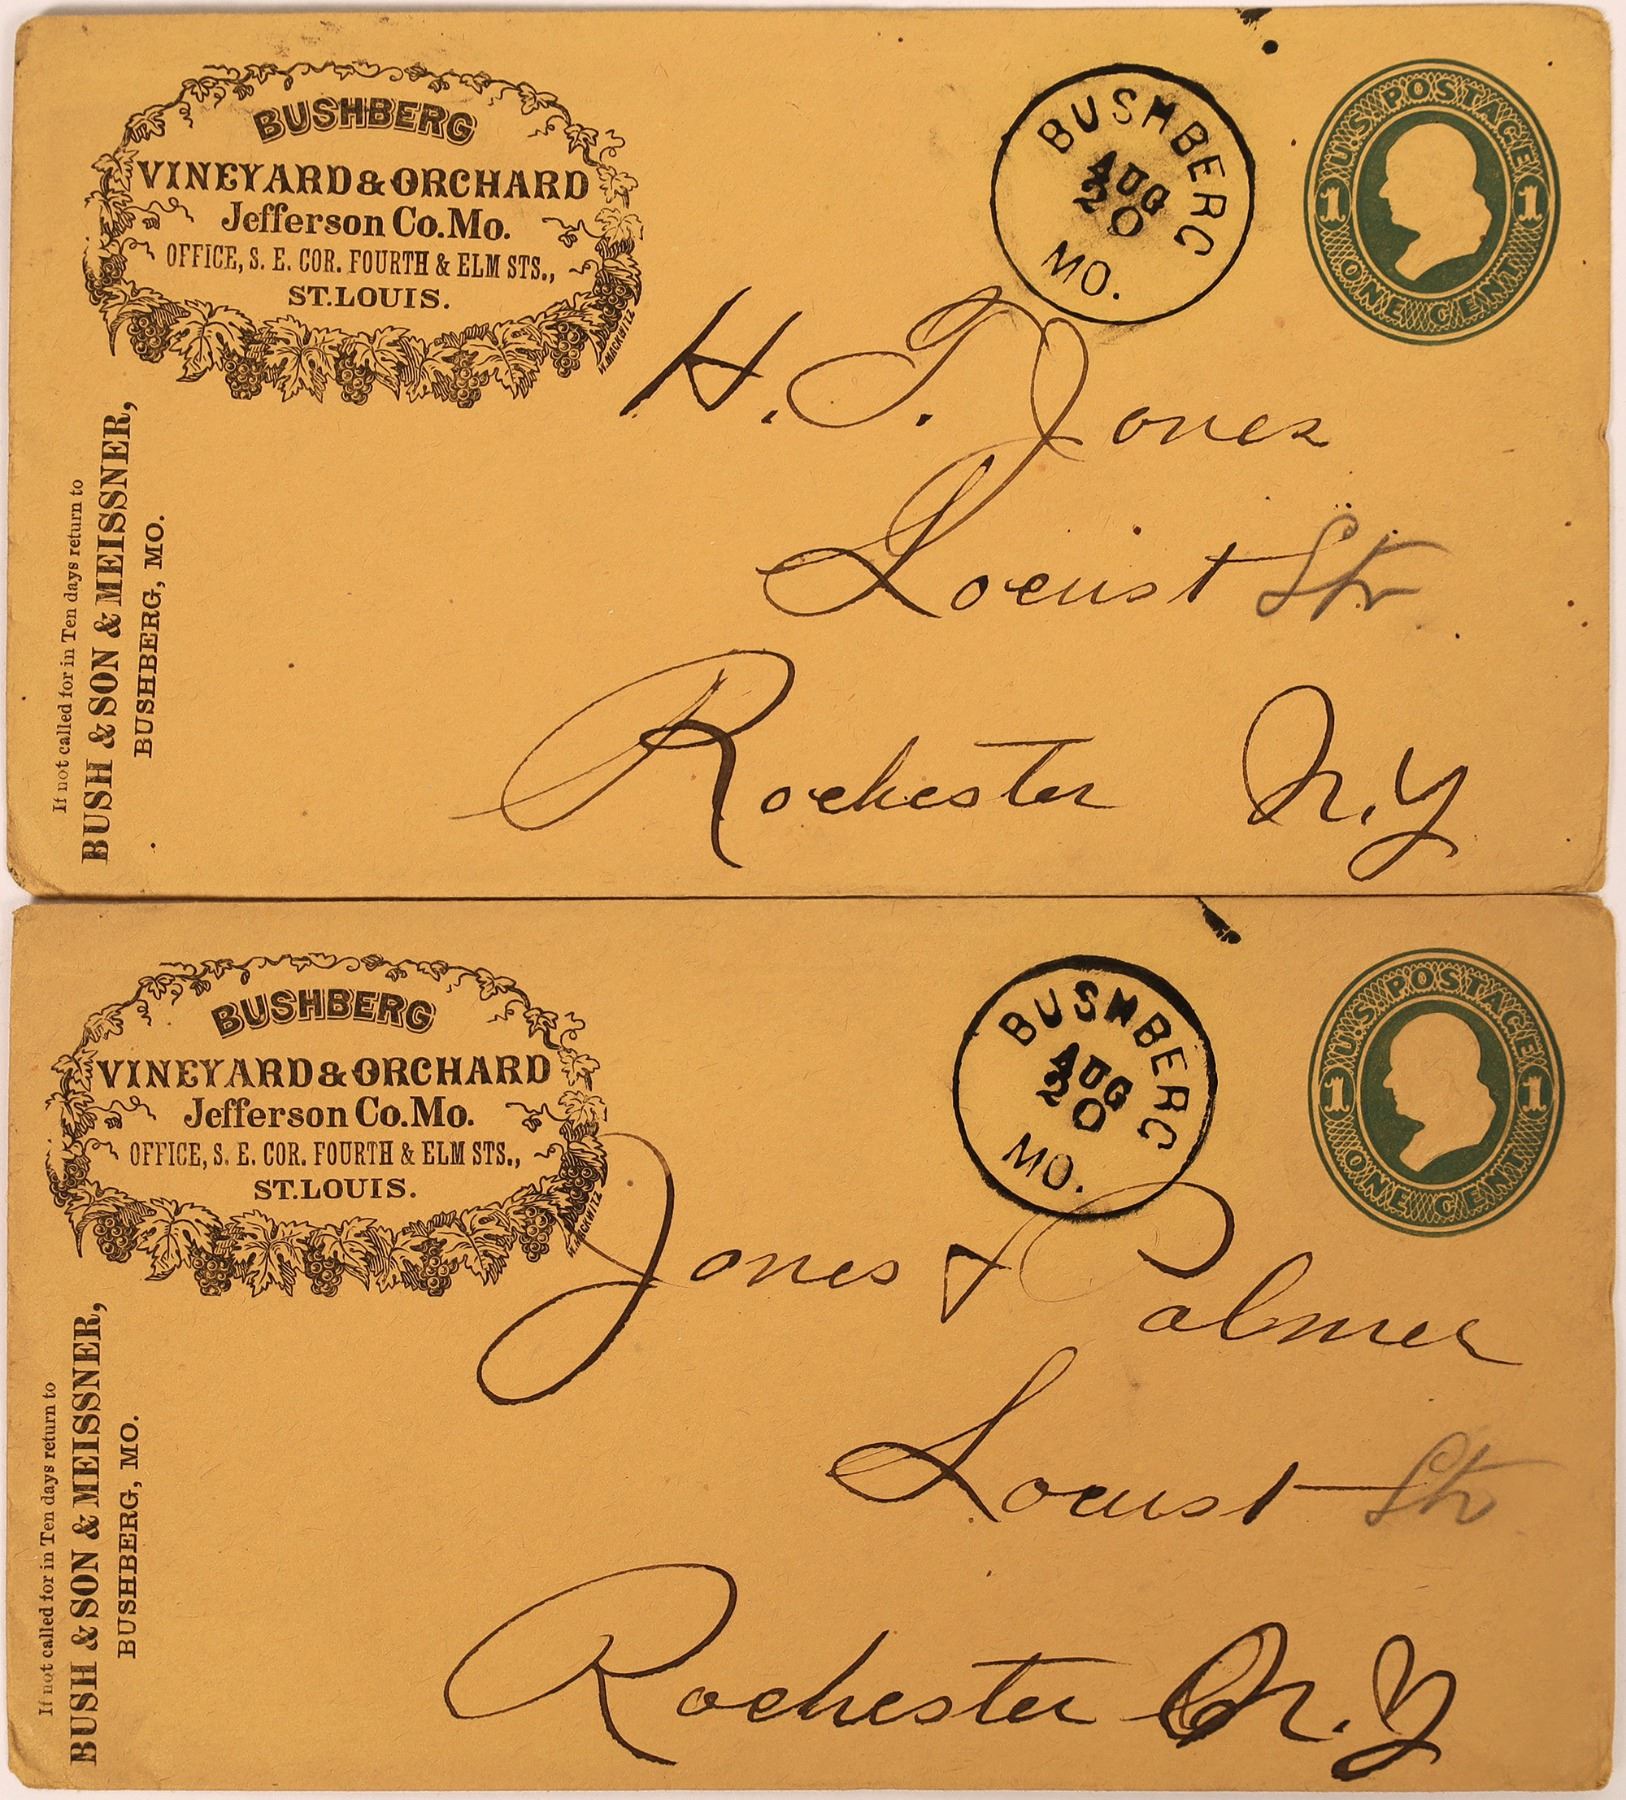 BUSHBERG
VINEYARD & ORCHARD
Jefferson Co. Mo.
OFFICE, S. E. COR. FOURTH & ELM STS.,
ST. LOUIS.
H. MACKWITZ
If not called for in Ten days return to
BUSH & SON & MEISSNER,
BUSHBERG, MO.
BUSHBERG
AUG
20
MO.
U.S. POSTAGE
1 1
ONE CENT
H. T. Jones
Locust Str
Rochester N.Y
BUSHBERG
VINEYARD & ORCHARD
Jefferson Co. Mo.
OFFICE, S. E. COR. FOURTH & ELM STS.,
ST. LOUIS.
H. MACKWITZ
If not called for in Ten days return to
BUSH & SON & MEISSNER,
BUSHBERG, MO.
BUSHBERG
AUG
20
MO.
U.S. POSTAGE
1 1
ONE CENT
Jones & Palmer
Locust Str
Rochester N.Y